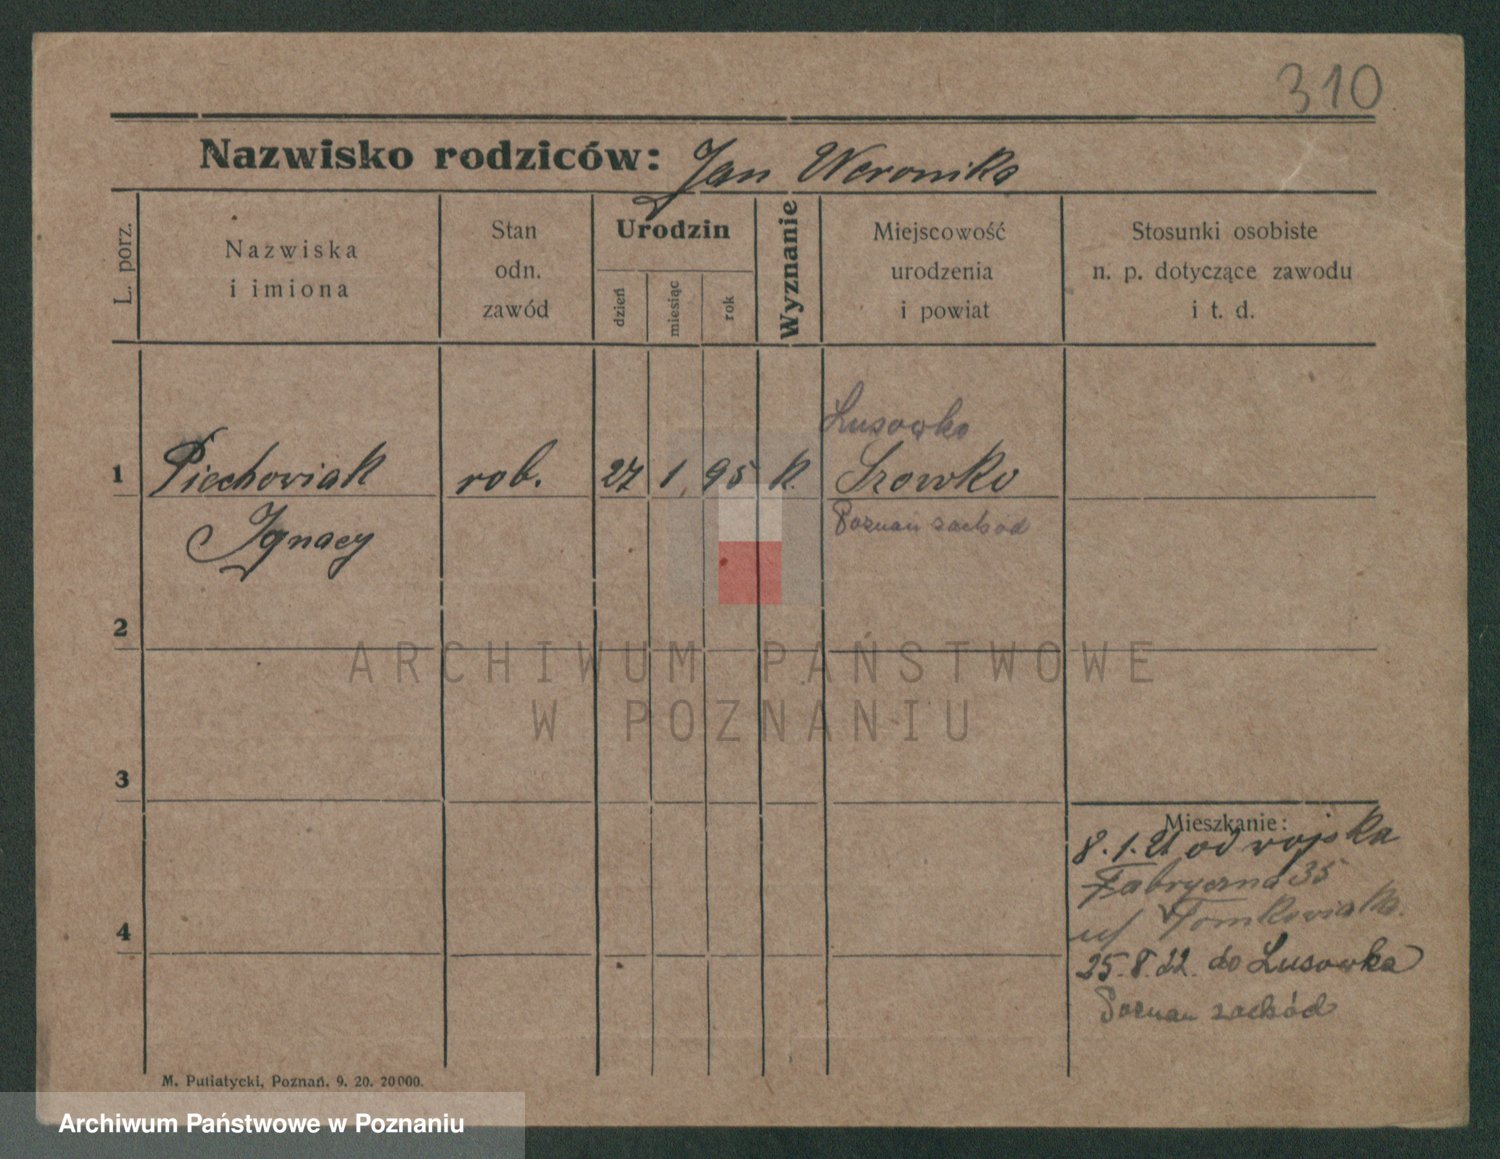 310
Nazwisko rodziców: Jan Weronika
L. porz.
Nazwiska
i imiona
Stan
odn.
zawód
Urodzin
dzień
miesiąc
rok
Wyznanie
Miejscowość
urodzenia
i powiat
Stosunki osobiste
n. p. dotyczące zawodu
i t. d.
Lusowko
1 Piechowiak rob. 27 1. 95 k.
Poznań zachód
Ignacy
2
ARCHIWUM PAŃSTWOWE
W POZNANIU
3
Mieszkanie:
8.1.21 od wojska
Fabryczna 35
Tomkowiak
4
25.8.22. do Lusowka
Poznań zachód
M. Putiatycki, Poznań. 9. 20. 20000.
Archiwum Państwowe w Poznaniu